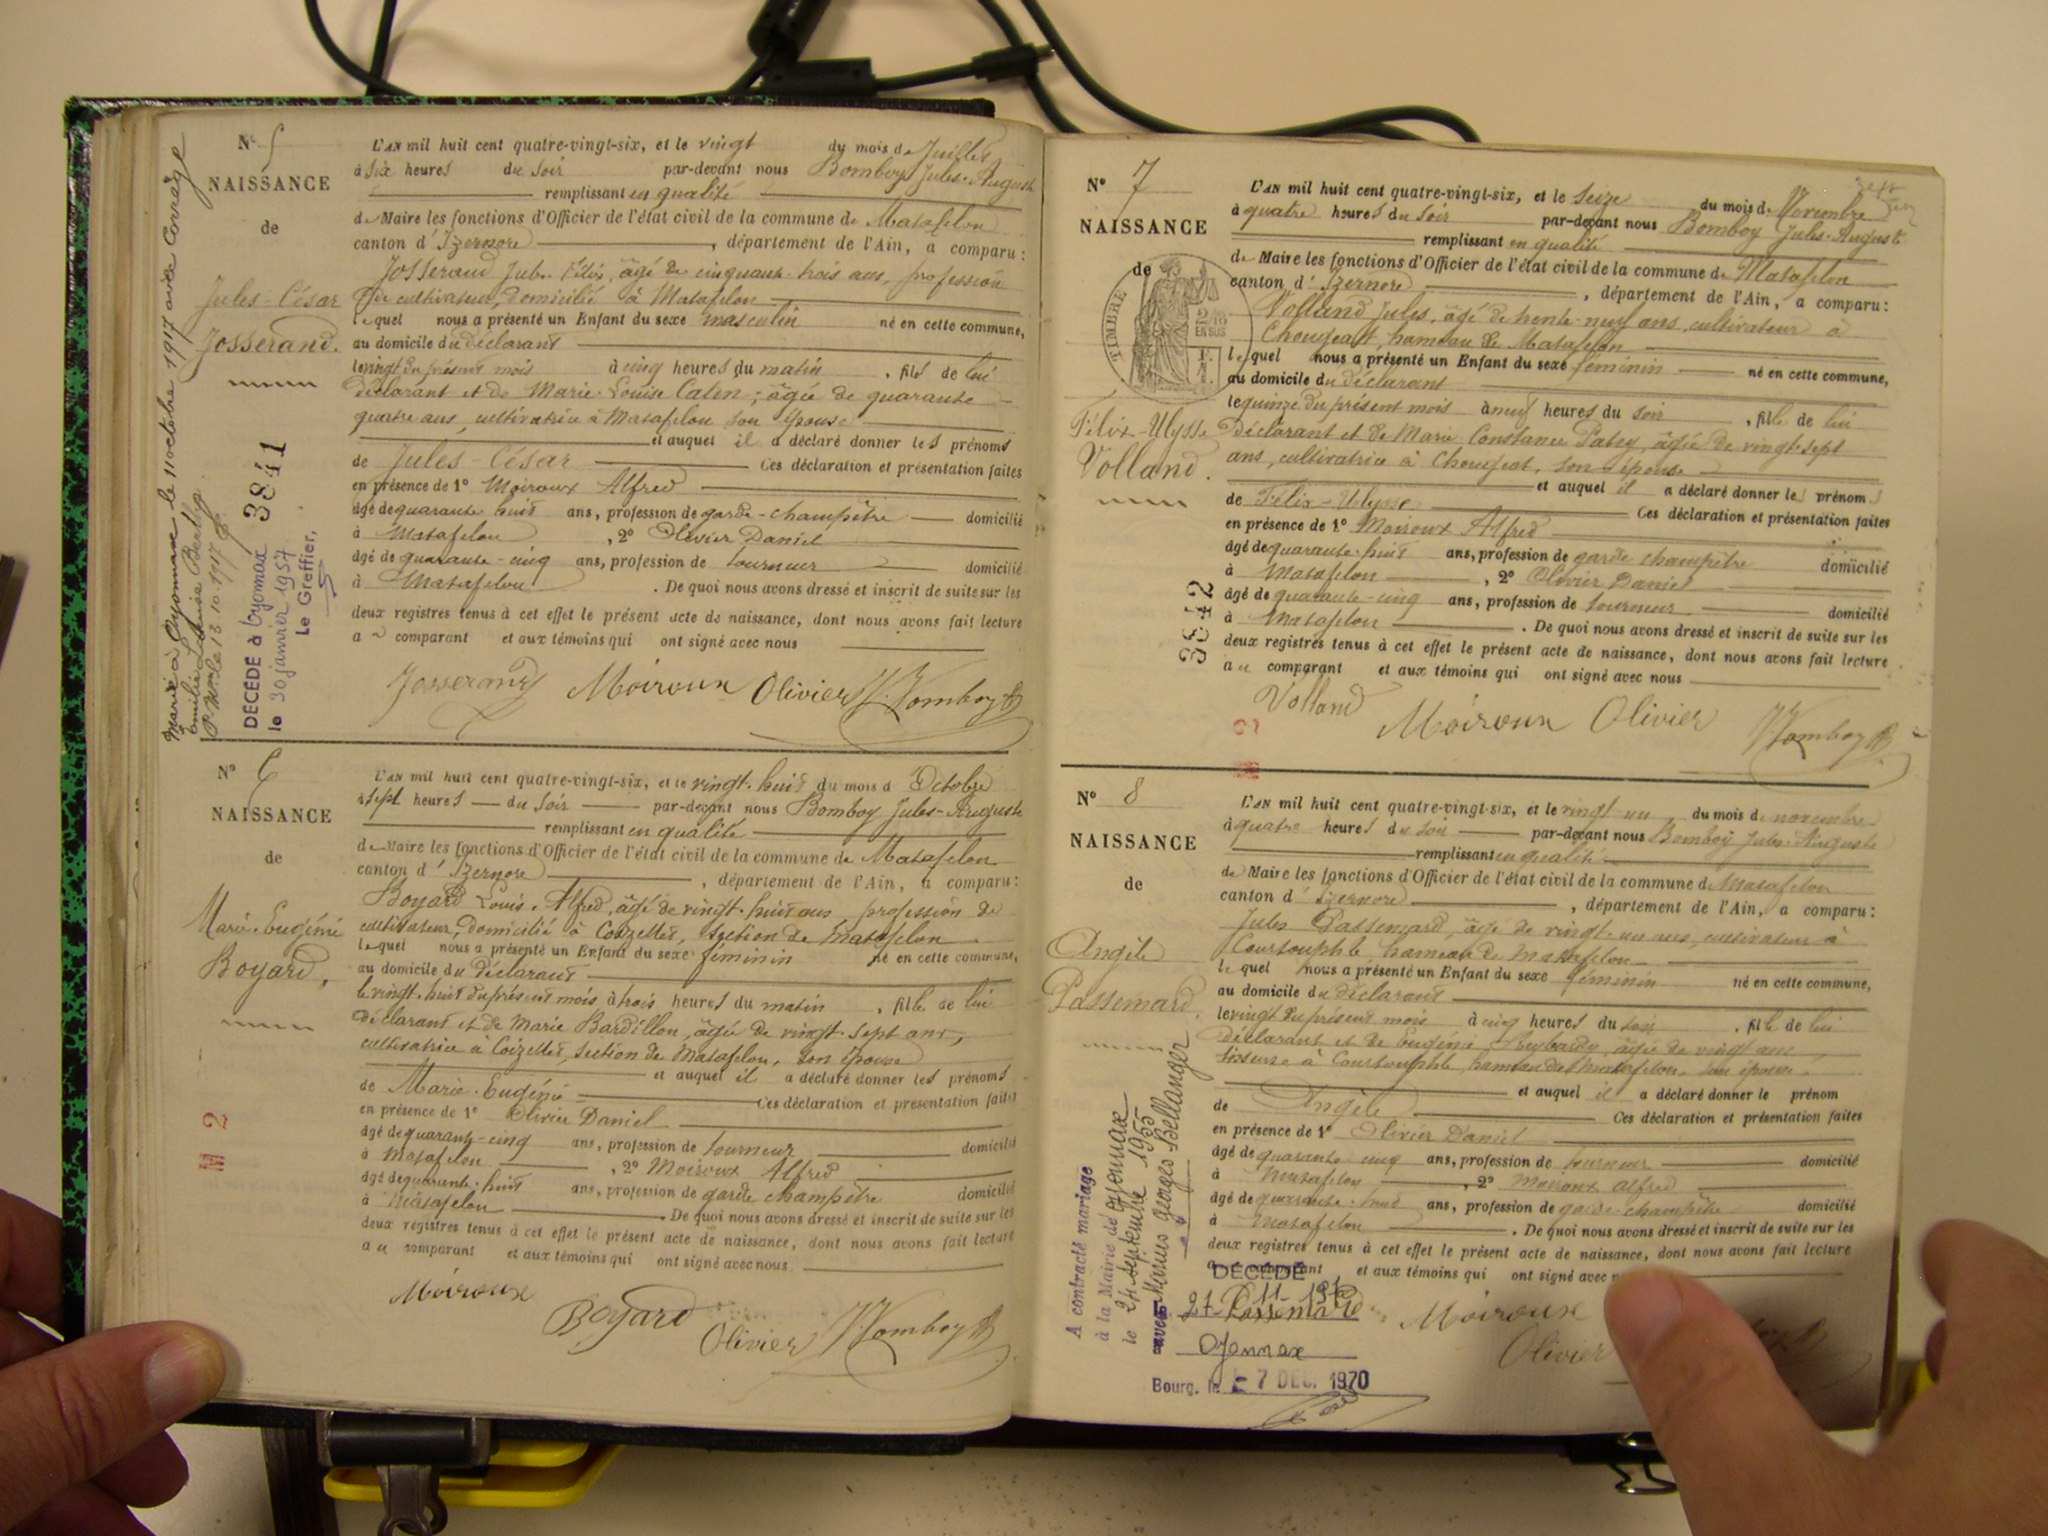 N° 5
NAISSANCE
de
Jules-César
Josserand.
L'AN mil huit cent quatre-vingt-six, et le vingt du mois de Juillet
à six heures du soir par-devant nous Bomboy Jules-Auguste
remplissant en qualité
de Maire les fonctions d'Officier de l'état civil de la commune de Matafelon
canton d'Izernore, département de l'Ain, a comparu:
Josserand Jules Félix, âgé de cinquante-trois ans, profession
de cultivateur, domicilié à Matafelon
lequel nous a présenté un Enfant du sexe masculin né en cette commune,
au domicile du déclarant
le vingt du présent mois à cinq heures du matin, fils de lui
déclarant et de Marie-Louise Caten; âgée de quarante-
quatre ans, cultivatrice à Matafelon son épouse
et auquel il a déclaré donner les prénoms
de Jules-César Ces déclaration et présentation faites
en présence de 1° Moiroux Alfred
âgé de quarante huit ans, profession de garde-champêtre domicilié
à Matafelon, 2° Olivier Daniel
âgé de quarante-cinq ans, profession de tourneur domicilié
à Matafelon. De quoi nous avons dressé et inscrit de suite sur les
deux registres tenus à cet effet le présent acte de naissance, dont nous avons fait lecture
au comparant et aux témoins qui ont signé avec nous
Josserand Moiroux Olivier J. Bomboy
Marié à Oyonnax le 11 octobre 1917 avec Corrage
Emilie Louise Berthe
le 13.10.1917
DÉCÉDÉ à Oyonnax 3841
le 30 janvier 1957
Le Greffier,
N° 6
NAISSANCE
de
Marie-Eugénie
Boyard,
L'AN mil huit cent quatre-vingt-six, et le vingt-huit du mois d'Octobre
à sept heures du soir par-devant nous Bomboy Jules-Auguste
remplissant en qualité
de Maire les fonctions d'Officier de l'état civil de la commune de Matafelon
canton d'Izernore, département de l'Ain, a comparu:
Boyard Louis-Alfred, âgé de vingt-huit ans, profession de
cultivateur, domicilié à Coizelles, section de Matafelon
lequel nous a présenté un Enfant du sexe féminin né en cette commune,
au domicile du déclarant
le vingt-huit du présent mois à trois heures du matin, fille de lui
déclarant et de Marie Bardillon, âgée de vingt-sept ans,
cultivatrice à Coizelles, section de Matafelon, son épouse
et auquel il a déclaré donner les prénoms
de Marie-Eugénie Ces déclaration et présentation faites
en présence de 1° Olivier Daniel
âgé de quarante-cinq ans, profession de tourneur domicilié
à Matafelon, 2° Moiroux Alfred
âgé de quarante-huit ans, profession de garde champêtre domicilié
à Matafelon. De quoi nous avons dressé et inscrit de suite sur les
deux registres tenus à cet effet le présent acte de naissance, dont nous avons fait lecture
au comparant et aux témoins qui ont signé avec nous
Moiroux
Boyard Olivier J. Bomboy
M 2
N° 7
NAISSANCE
de
TIMBRE
2/10
EN SUS
Félix-Ulysse
Volland.
L'AN mil huit cent quatre-vingt-six, et le seize du mois de Novembre
à quatre heures du soir par-devant nous Bomboy Jules-Auguste
remplissant en qualité
de Maire les fonctions d'Officier de l'état civil de la commune de Matafelon
canton d'Izernore, département de l'Ain, a comparu:
Volland Jules, âgé de trente-neuf ans, cultivateur à
Chougeat, hameau de Matafelon
lequel nous a présenté un Enfant du sexe féminin né en cette commune,
au domicile du déclarant
le quinze du présent mois à neuf heures du soir, fille de lui
déclarant et de Marie Constance Patey, âgée de vingt-sept
ans, cultivatrice à Chougeat, son épouse
et auquel il a déclaré donner les prénoms
de Félix-Ulysse Ces déclaration et présentation faites
en présence de 1° Moiroux Alfred
âgé de quarante-huit ans, profession de garde champêtre domicilié
à Matafelon, 2° Olivier Daniel
âgé de quarante-cinq ans, profession de tourneur domicilié
à Matafelon. De quoi nous avons dressé et inscrit de suite sur les
deux registres tenus à cet effet le présent acte de naissance, dont nous avons fait lecture
au comparant et aux témoins qui ont signé avec nous
Volland
Moiroux Olivier J. Bomboy
3842
N° 8
NAISSANCE
de
Angèle
Passemard.
L'AN mil huit cent quatre-vingt-six, et le vingt-un du mois de novembre
à quatre heures du soir par-devant nous Bomboy Jules-Auguste
remplissant en qualité
de Maire les fonctions d'Officier de l'état civil de la commune de Matafelon
canton d'Izernore, département de l'Ain, a comparu:
Jules Passemard, âgé de vingt-un ans, cultivateur à
Courtouphle hameau de Matafelon
lequel nous a présenté un Enfant du sexe féminin né en cette commune,
au domicile du déclarant
le vingt du présent mois à cinq heures du soir, fille de lui
déclarant et de Eugénie Reybard, âgée de vingt ans
à Courtouphle, hameau de Matafelon, son épouse.
et auquel il a déclaré donner le prénom
de Angèle Ces déclaration et présentation faites
en présence de 1° Olivier Daniel
âgé de quarante cinq ans, profession de tourneur domicilié
à Matafelon, 2° Moiroux Alfred
âgé de quarante-huit ans, profession de garde-champêtre domicilié
à Matafelon. De quoi nous avons dressé et inscrit de suite sur les
deux registres tenus à cet effet le présent acte de naissance, dont nous avons fait lecture
au comparant et aux témoins qui ont signé avec
Passemard Moiroux
Olivier
A contracté mariage
à la Mairie de Oyonnax
le 24 septembre 1955
avec Marius Georges Bellanger
DÉCÉDÉ
27-11-1970
Oyonnax
Bourg, le - 7 DEC. 1970